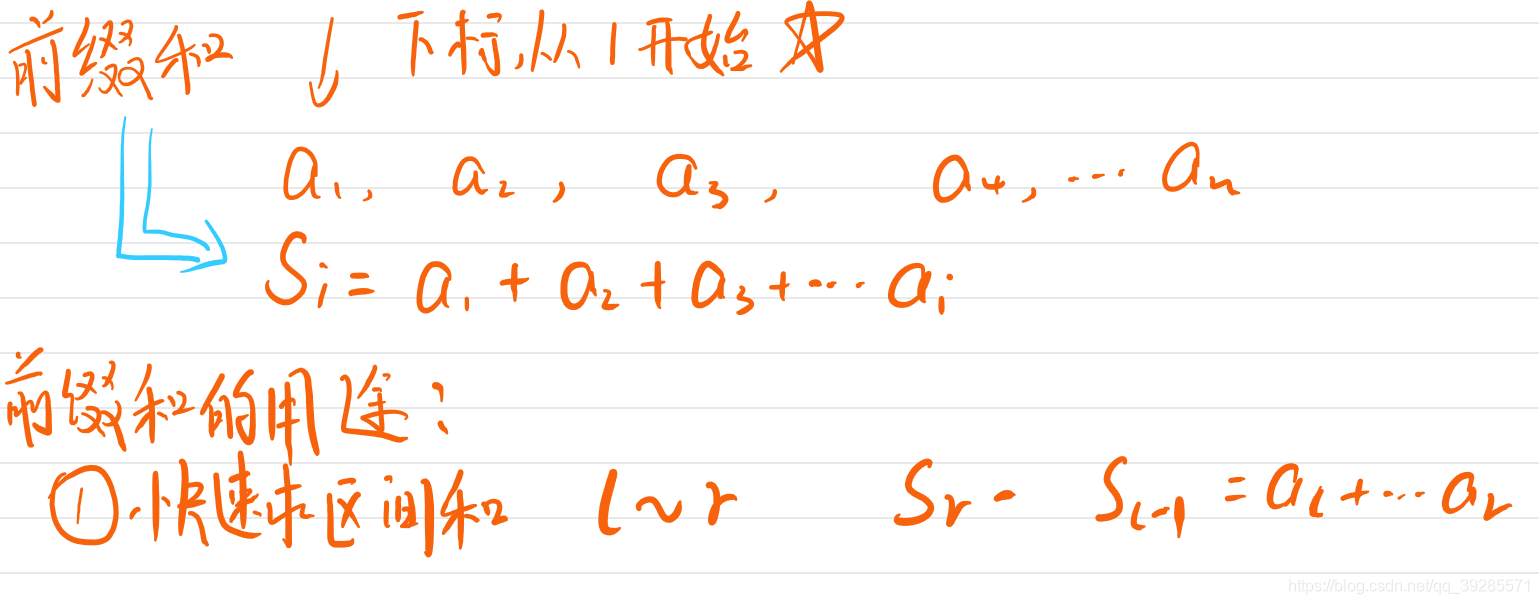 前缀和 下标从1开始
a₁, a₂, a₃, a₄, … aₙ
Sᵢ = a₁ + a₂ + a₃ + … aᵢ
前缀和的用途:
①.快速求区间和 l ~ r Sᵣ - Sₗ₋₁ = aₗ + … aᵣ
https://blog.csdn.net/qq_39285571